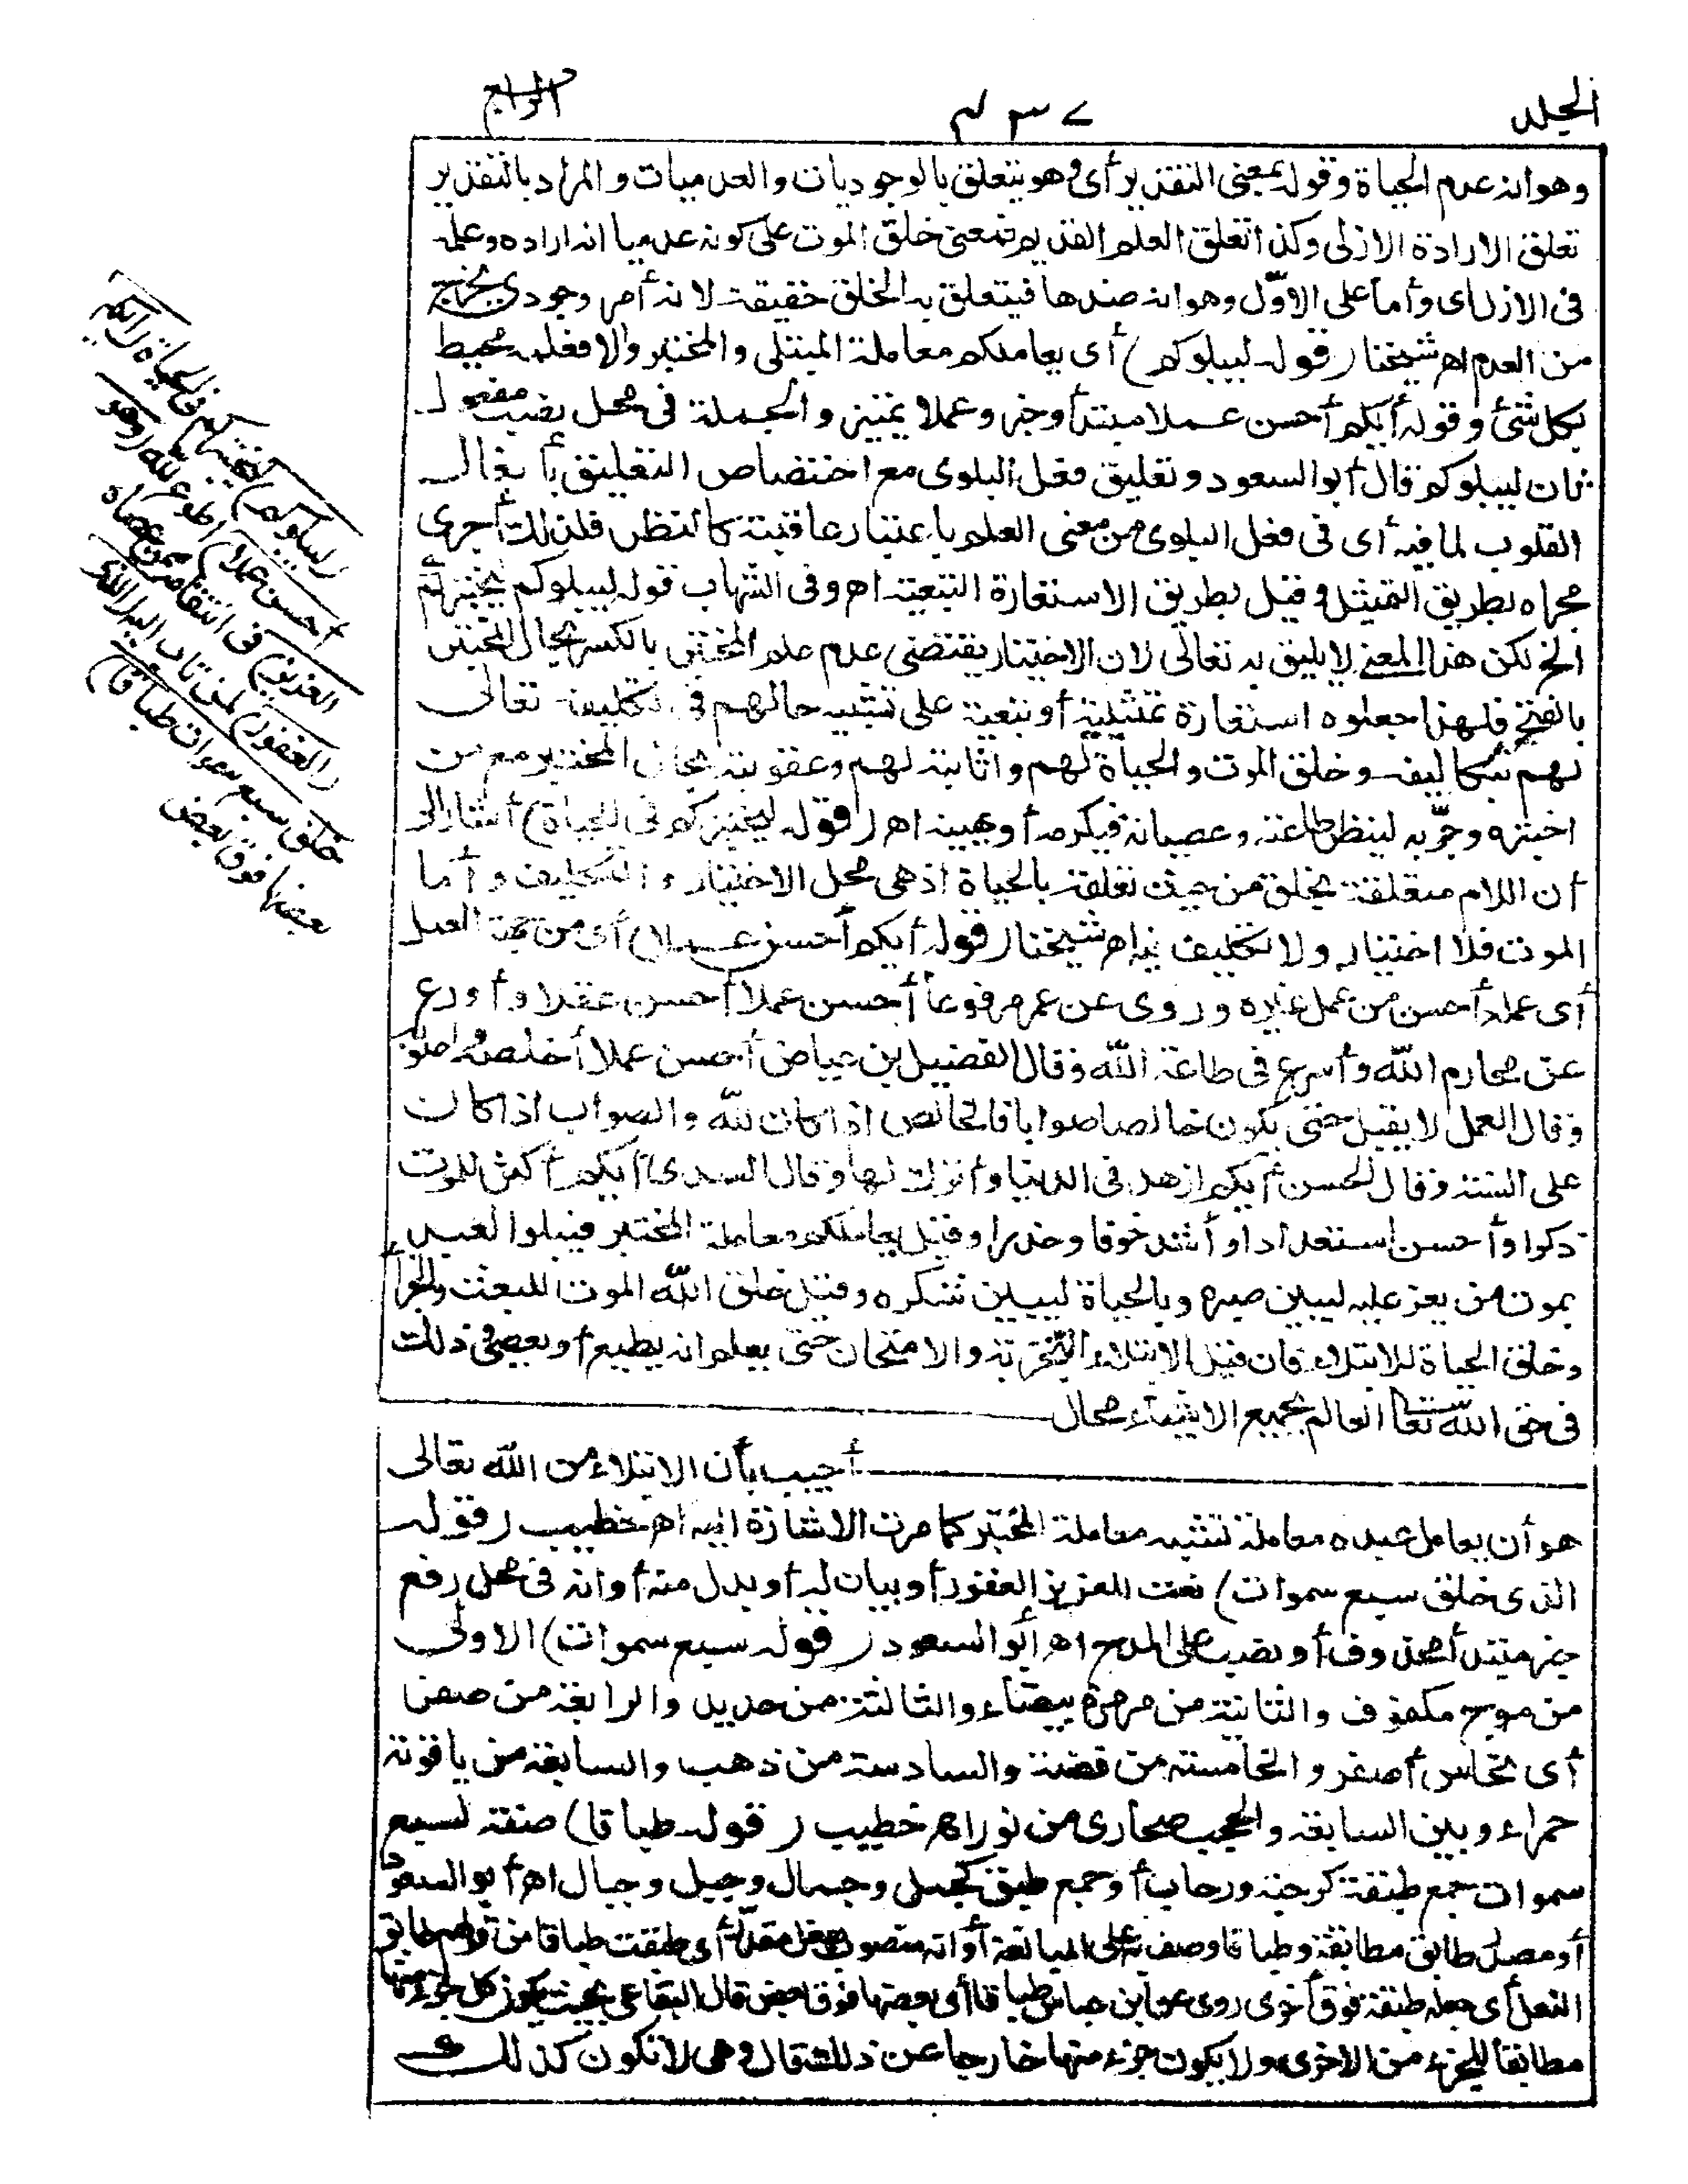 الجلد ٤٣٧ الرابع
وهو انه عدم الحياة وقوله بمعنى التقدير أى وهو يتعلق بالوجوديات والعدميات والمراد بالتقدير
تعلق الارادة الازلى وكذا تعلق العلم القديم فمعنى خلق الموت على كونه عدميا انه اراده وعلمه
فى الازل اى وأما على الاوّل وهو انه ضدها فيتعلق به الخلق حقيقة لانه أمر وجودى يخرج
من العدم اهـ شيخنا (قوله ليبلوكم) أى يعاملكم معاملة المبتلى والمختبر والا فعلمه محيط
بكل شئ وقوله أيكم أحسن عملا مبتدأ وخبر وعملا تمييز والجملة فى محل نصب مفعول
ثان ليبلوكم قال أبو السعود وتعليق فعل البلوى مع اختصاص التعليق بأفعال
القلوب لما فيه أى فى فعل البلوى من معنى العلم باعتبار عاقبته كالنظر فلذلك أجرى
مجراه بطريق التمثيل وقيل بطريق الاستعارة التبعية اهـ وفى الشهاب قوله ليبلوكم يختبركم
الخ لكن هذا المعنى لا يليق به تعالى لان الاختبار يقتضى عدم علم المختبر بالكسر بحال المختبر
بالفتح فلهذا جعلوه استعارة تمثيلية أو تبعية على تشبيه حالهم فى تكليفه تعالى
لهم بتكاليفه وخلق الموت والحياة لهم واثابته لهم وعقوبته بحال المختبر مع من
اختبره وجرّبه لينظر طاعته وعصيانه فيكرمه أو يهينه اهـ (قوله ليختبركم فى الحياة) أشار الى
أن اللام متعلقة بخلق من حيث تعلقه بالحياة اذ هى محل الاختبار والتكليف وأما
الموت فلا اختيار ولا تكليف فيه اهـ شيخنا (قوله أيكم أحسن عملا) أى من جهة العمل
أى عمله أحسن من عمل غيره وروى عن عمر مرفوعا أحسن عملا أحسن عقلا وأورع
عن محارم الله وأسرع فى طاعة الله وقال الفضيل بن عياض أحسن عملا أخلصه وأصوبه
وقال العمل لا يقبل حتى يكون خالصا صوابا فالخالص اذا كان لله والصواب اذا كان
على السنة وقال الحسن أيكم ازهد فى الدنيا وأترك لها وقال السدى أيكم أكثر للموت
ذكرا وأحسن استعدادا وأشد خوفا وحذرا وقيل يعاملكم معاملة المختبر فيبلوا العبد
بموت من يعز عليه ليبين صبره وبالحياة ليبين شكره وقيل خلق الله الموت للبعث والجزاء
وخلق الحياة للابتلاء فان قيل الابتلاء التجربة والامتحان حتى يعلم انه يطيع أو يعصى وذلك
فى حق الله تعالى العالم بجميع الاشياء محال
أجيب بأن الابتلاء من الله تعالى
هو أن يعامل عبده معاملة تشبه معاملة المختبر كما مرت الاشارة اليه اهـ خطيب (قوله
الذى خلق سبع سموات) نعت للعزيز الغفور أو بيان له أو بدل منه أو انه فى محل رفع
خبر مبتدأ محذوف أو نصب على المدح اهـ أبو السعود (قوله سبع سموات) الاولى
من موج مكفوف والثانية من مرمرة بيضاء والثالثة من حديد والرابعة من صفر
أى نحاس أصفر والخامسة من فضة والسادسة من ذهب والسابعة من ياقوتة
حمراء وبين السابعة والحجب صحارى من نور اهـ خطيب (قوله طباقا) صفة لسبع
سموات جمع طبقة كرحبة ورحاب أو جمع طبق كجمل وجمال وجبل وجبال اهـ أبو السعود
أو مصدر طابق مطابقة وطباقا وصف به على المبالغة أو انه منصوب بفعل مقدر أى طبقت طباقا من قولهم طابق
النعل أى جعله طبقة فوق أخرى روى عن ابن عباس طباقا أى بعضها فوق بعض قال البقاعى بحيث يكون كل جزء منها
مطابقا للجزء من الاخرى ولا يكون جزء منها خارجا عن ذلك قال وهى لا تكون كذلك
فالحياة
(ليبلوكم) ليختبركم
أحسن عملا) أطوع لله (وهو
العزيز) فى انتقامه ممن عصاه
(الغفور) لمن تاب اليه (الذى
خلق سبع سموات طباقا)
بعضها فوق بعض